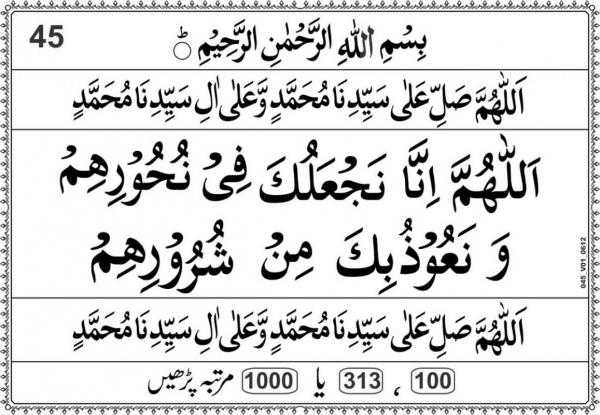 45
بِسْمِ اللهِ الرَّحْمٰنِ الرَّحِيْمِ
اَللّٰهُمَّ صَلِّ عَلٰى سَيِّدِنَا مُحَمَّدٍ وَّعَلٰى اٰلِ سَيِّدِنَا مُحَمَّدٍ
اَللّٰهُمَّ اِنَّا نَجْعَلُكَ فِىْ نُحُوْرِهِمْ
وَ نَعُوْذُبِكَ مِنْ شُرُوْرِهِمْ
045_V01_0612
اَللّٰهُمَّ صَلِّ عَلٰى سَيِّدِنَا مُحَمَّدٍ وَّعَلٰى اٰلِ سَيِّدِنَا مُحَمَّدٍ
100 ، 313 یا 1000 مرتبہ پڑھیں